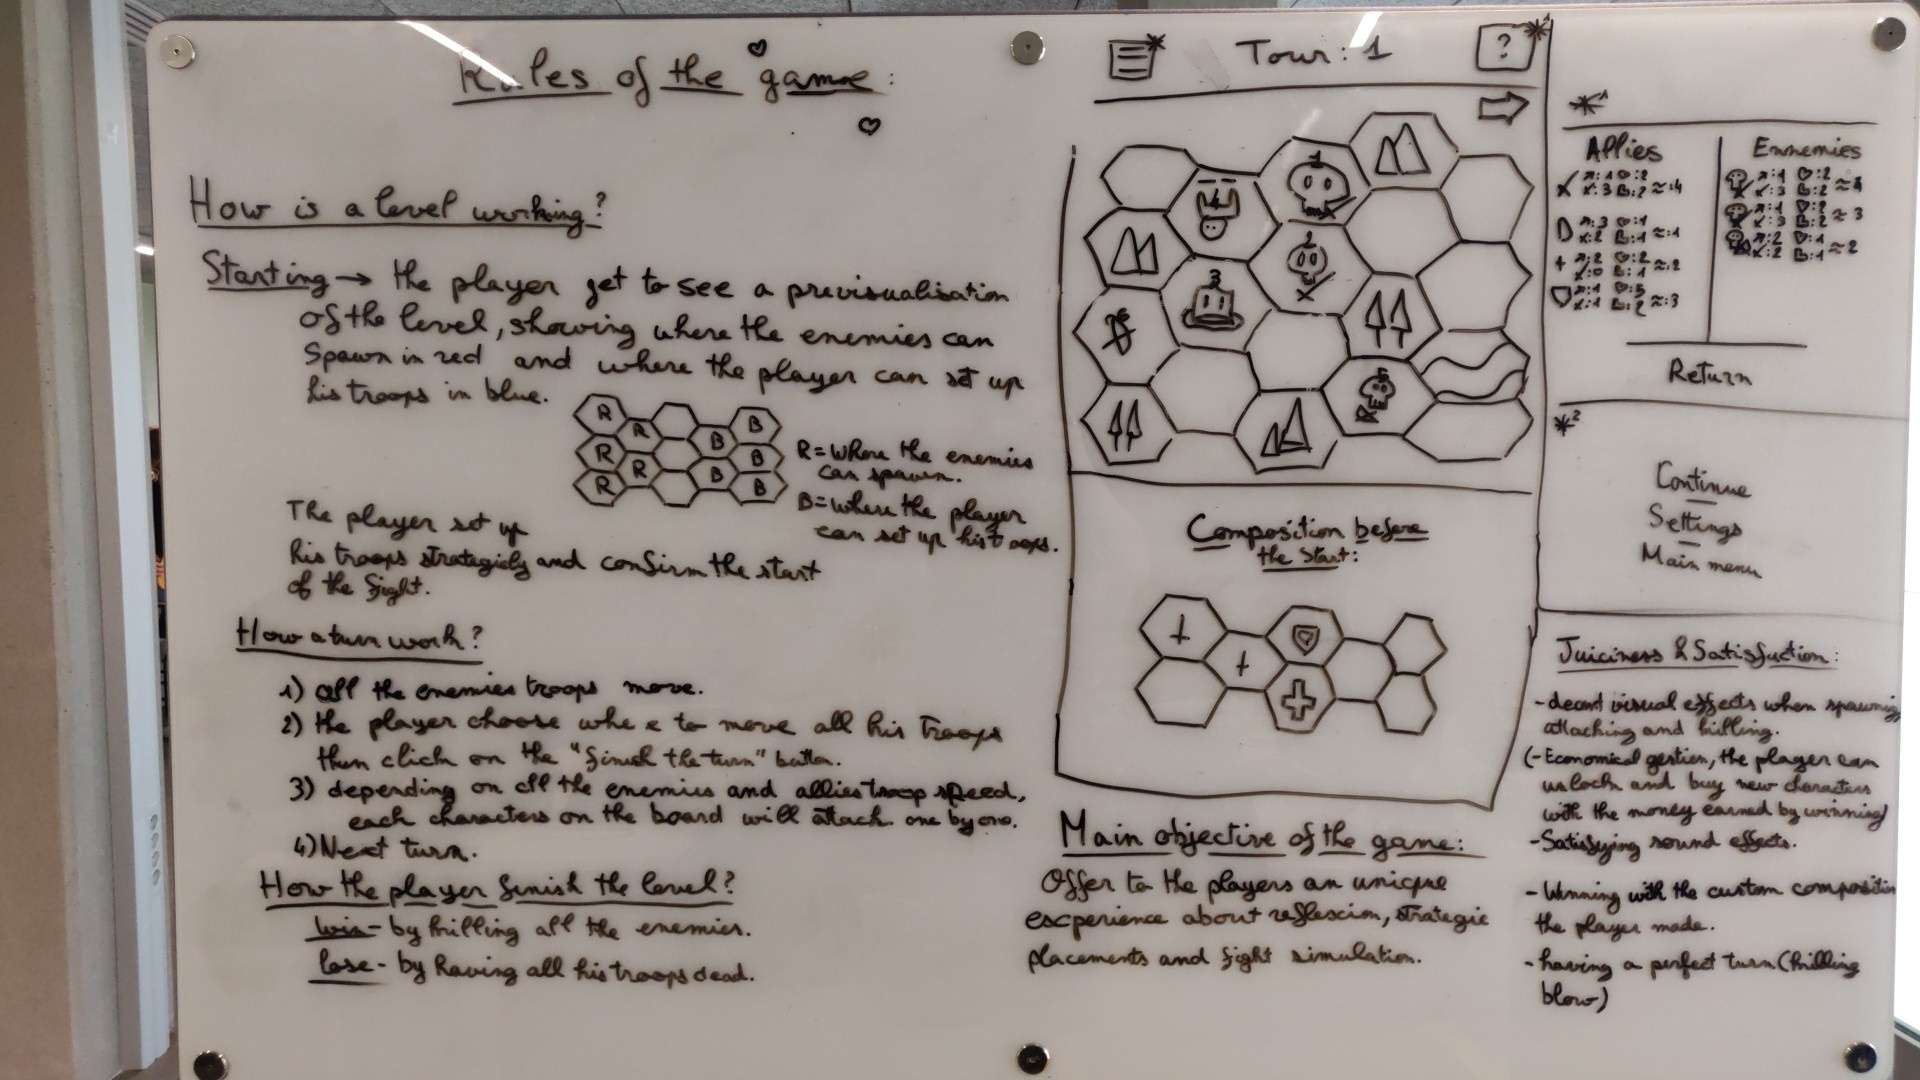 Rules of the game:
How is a level working?
Starting → the player get to see a previsualisation
of the level, showing where the enemies can
spawn in red and where the player can set up
his troops in blue.
R R B
R B B
R R B B
R B
R = where the enemies
can spawn.
B = where the player
can set up his troops.
The player set up
his troops strategicly and confirm the start
of the fight.
How a turn work?
1) all the enemies troops move.
2) the player choose whe e to move all his troops
then click on the "finish the turn" button.
3) depending on all the enemies and allies troop speed,
each characters on the board will attack one by one.
4) Next turn.
How the player finish the level?
win - by killing all the enemies.
lose - by having all his troops dead.
Tour: 1
?
1
4
2
3
5
Composition before
the start:
Main objective of the game:
Offer to the players an unique
experience about reflexion, strategic
placements and fight simulation.
*1
Allies
Ennemies
Return
*2
Continue
Settings
Main menu
Juiciness & Satisfaction:
- decent visual effects when spawning,
attacking and killing.
(- Economical gestion, the player can
unlock and buy new characters
with the money earned by winning)
- Satisfying sound effects.
- Winning with the custom composition
the player made.
- having a perfect turn (killing
blow)